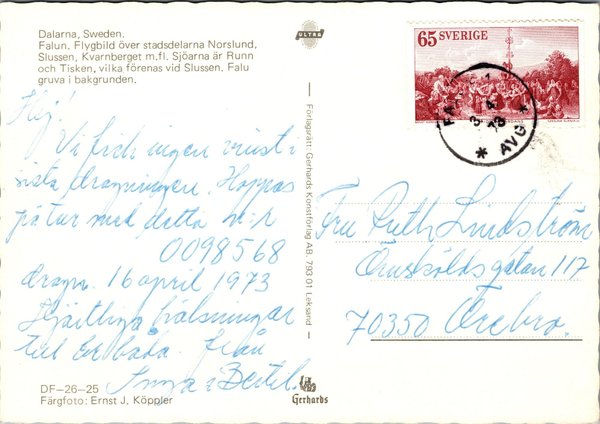 Dalarna, Sweden.
Falun. Flygbild över stadsdelarna Norslund,
Slussen, Kvarnberget m.fl. Sjöarna är Runn
och Tisken, vilka förenas vid Slussen. Falu
gruva i bakgrunden.
ULTRA
65 SVERIGE
3 4
73
* AVG *
Hej!
Vi fick ingen vinst i
sista dragningen. Hoppas
på tur med detta nr
0098568
dragn. 16 april 1973
Hjärtliga hälsningar
till Er båda från
Inga o Bertil.
Förlagsrätt: Gerhards Konstförlag AB, 793 01 Leksand
Fru Ruth Lindström
Örnsköldsgatan 117
70350 Örebro.
DF-26-25
Färgfoto: Ernst J. Köppler
Gerhards